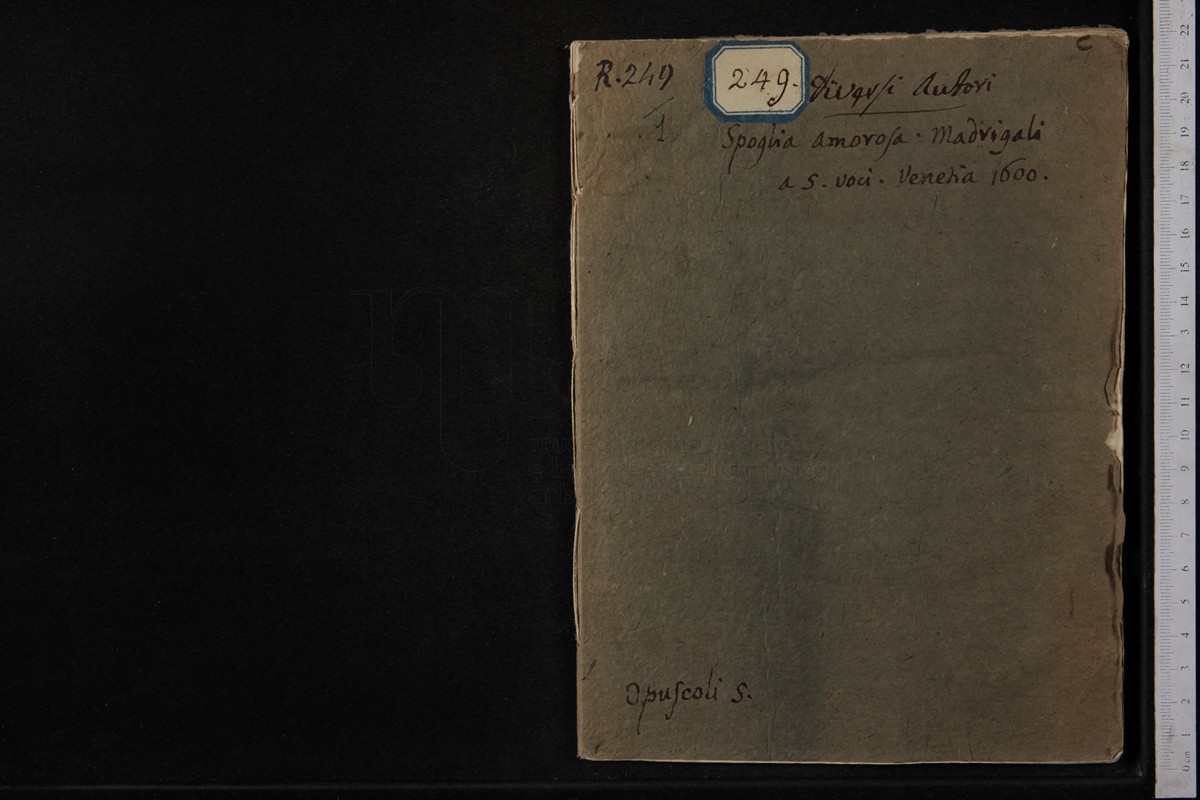 R.249
249.
Diversi Autori
1
Spoglia amorosa. Madrigali
a 5. voci. Venetia 1600.
Opuscoli 5.
C
22
21
20
19
18
17
16
15
14
13
12
11
10
9
8
7
6
5
4
3
2
1
0 cm